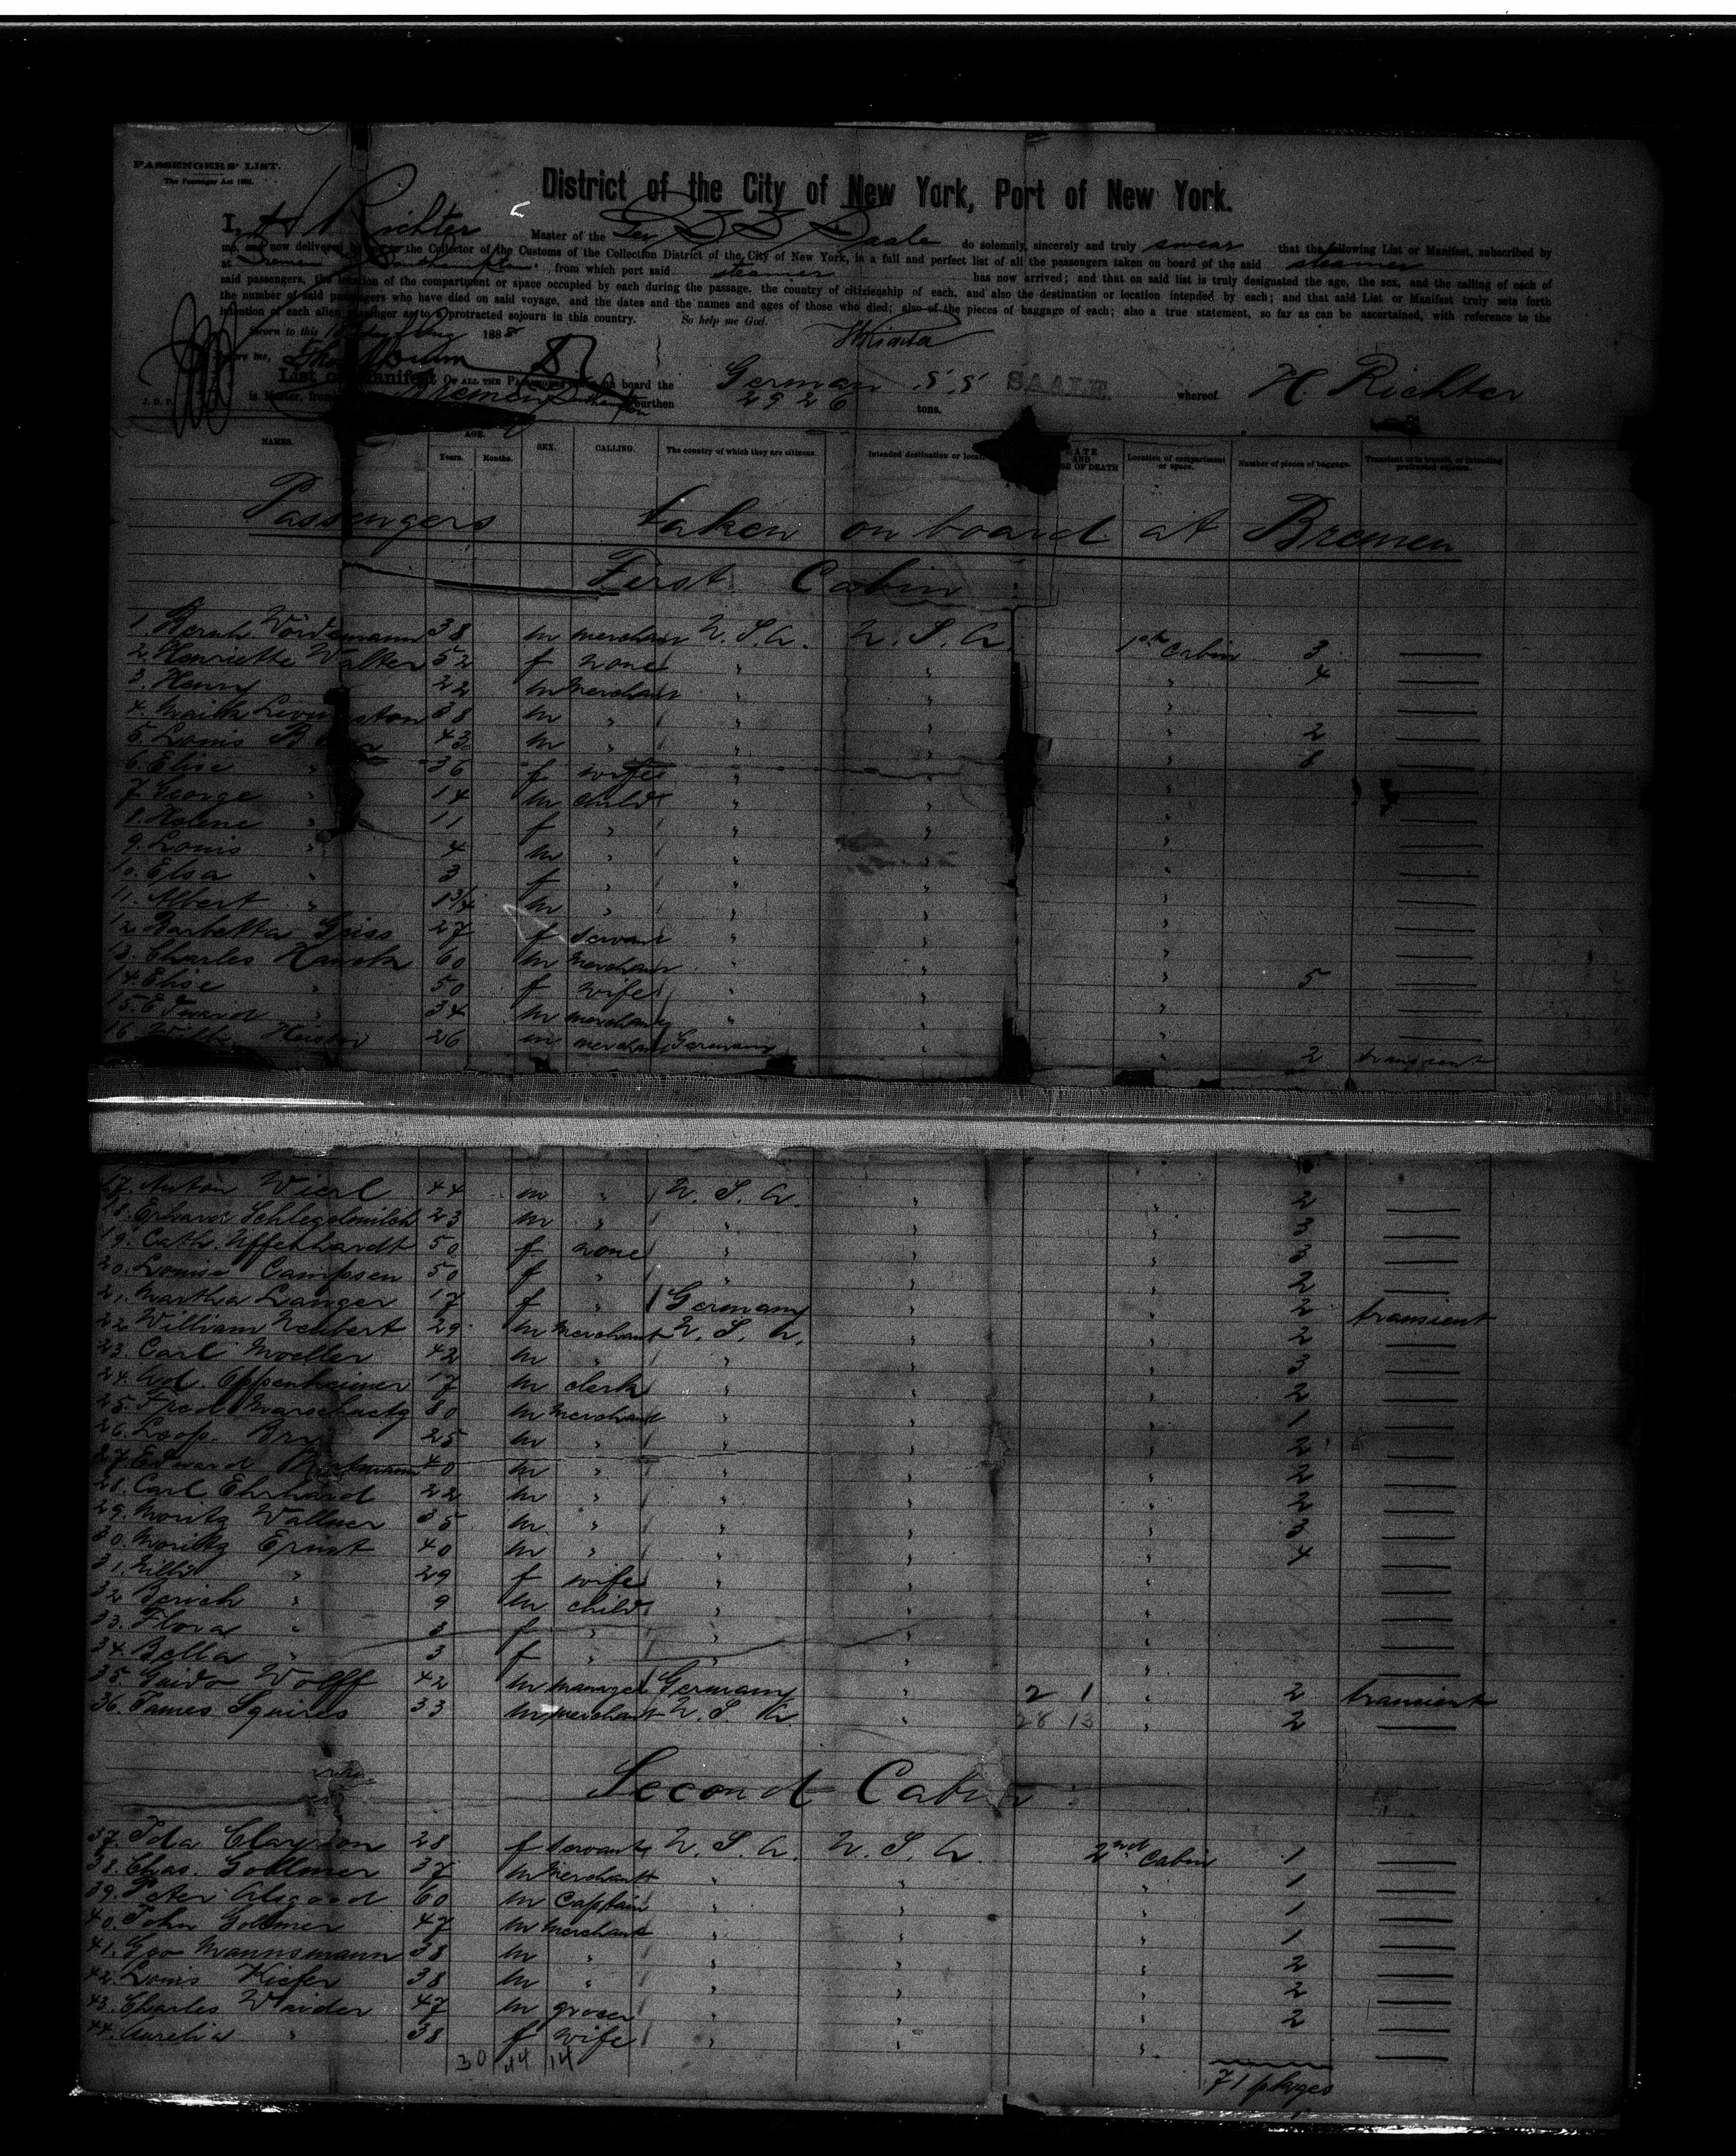 PASSENGERS' LIST.
The Passenger Act 1882.
District of the City of New York, Port of New York.
I, H Richter Master of the Ger S S Saale do solemnly, sincerely and truly swear that the following List or Manifest, subscribed by
me, and now delivered by me to the Collector of the Customs of the Collection District of the City of New York, is a full and perfect list of all the passengers taken on board of the said steamer
at Bremen Southampton from which port said steamer has now arrived; and that on said list is truly designated the age, the sex, and the calling of each of
said passengers, the location of the compartment or space occupied by each during the passage, the country of citizenship of each, and also the destination or location intended by each; and that said List or Manifest truly sets forth
the number of said passengers who have died on said voyage, and the dates and the names and ages of those who died; also of the pieces of baggage of each; also a true statement, so far as can be ascertained, with reference to the
intention of each alien passenger as to a protracted sojourn in this country. So help me God.
Sworn to this 18 day of Aug 1888 HRichter
before me,
List or Manifest OF ALL THE PASSENGERS on board the German S.S. SAALE whereof H. Richter
is Master, from Bremen Southampton burthen 2926 tons.
NAMES. AGE. Years. Months. SEX. CALLING. The country of which they are citizens. Intended destination or location DATE AND CAUSE OF DEATH Location of compartment or space. Number of pieces of baggage. Transient or in transit, or intending protracted sojourn.
Passengers taken on board at Bremen
First Cabin
1. Bernh. Wördemann 38 m merchant U.S.A. U.S.A. 1st Cabin 3 —
2. Henriette Walter 52 f none " " " 4 —
3. Henry 22 m merchant " " " —
4. Livingston 38 m " " " " 2 —
5. Louis 43 m " " " " 8 —
6. Elise " 36 f wife " " " —
7. George " 14 m child " " " —
8. Helene " 11 f " " " " —
9. Louis " 4 m " " " " —
10. Elsa " 3 f " " " " —
11. Albert " 1 3/4 m " " " " —
12. Barbetta Geiss 27 f servant " " " —
13. Charles Hauck 60 m merchant " " " 5 —
14. Elise " 50 f wife " " " —
15. Edward " 34 m merchant " " " —
16. Wilh. 26 m merchant Germany " " 2 transient
17. Anton Wierl 44 m " U.S.A. " " 2 —
18. Erhard Schlegelmilch 23 m " " " " 3 —
19. Cath. Uffenhardt 50 f none " " " 3 —
20. Louise Campsen 50 f " " " " 2 —
21. Martha Langer 17 f " Germany " " 2 transient
22. William 29 m merchant U.S.A. " " 2 —
23. Carl Moeller 42 m " " " " 3 —
24. Ad. Oppenheimer 17 m clerk " " " 2 —
25. Fred 80 m merchant " " " 1 —
26. Leop. 25 m " " " " 2 —
27. Edward 40 m " " " " 2 —
28. Carl Ehrhard 22 m " " " " 2 —
29. Moritz Wallner 35 m " " " " 3 —
30. Moritz Ernst 40 m " " " " 4 —
31. " 29 f wife " " " —
32. " 9 m child " " " —
33. Flora " 8 f " " " " —
34. Bella " 3 f " " " " —
35. Guido Wolff 42 m manager Germany " 2 1 " 2 transient
36. James Squires 33 m merchant U.S.A. " 28 13 " 2 —
Second Cabin
37. Ida Clayson 28 f servant U.S.A. U.S.A. 2nd Cabin 1 —
38. Chas. Gollmer 37 m merchant " " " 1 —
39. Peter Alsgood 60 m Captain " " " 1 —
40. John Gollmer 47 m merchant " " " 1 —
41. Geo Mannsmann 38 m " " " " 2 —
42. Louis Kiefer 38 m " " " " 2 —
43. Charles Waider 47 m grocer " " " 2 —
44. Aurelia " 38 f wife " " " —
30 44 14
71 pkges